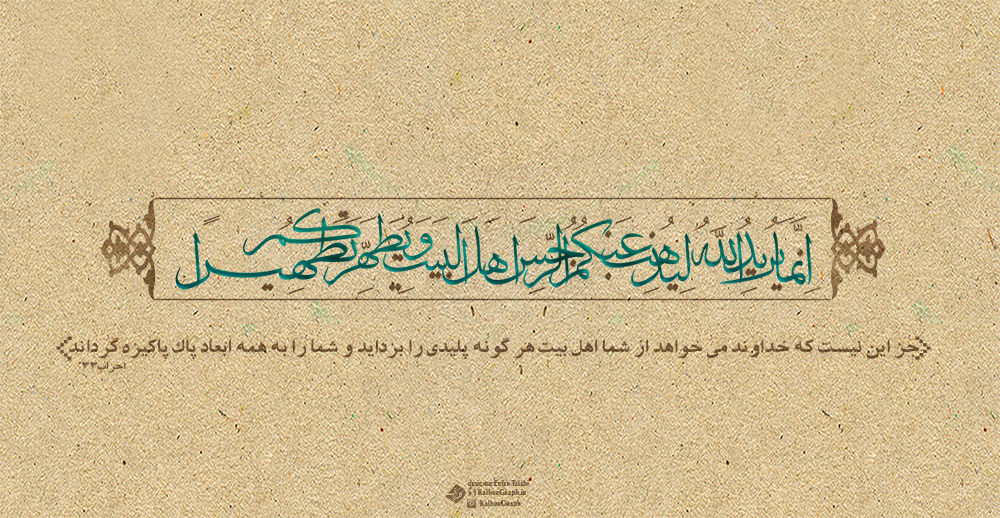 إِنَّمَا يُرِيدُ اللَّهُ لِيُذْهِبَ عَنْكُمُ الرِّجْسَ أَهْلَ الْبَيْتِ وَيُطَهِّرَكُمْ تَطْهِيرًا
جز این نیست که خداوند می خواهد از شما اهل بیت هر گونه پلیدی را بزداید و شما را به همه ابعاد پاک پاکیزه گرداند
احزاب۳۳
designer:Erfan Talebi
KalhorGraph.ir
KalhorGraph